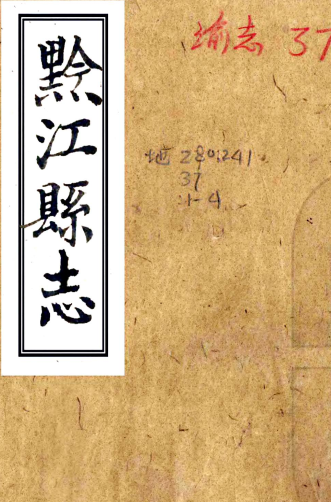 黔江縣志
渝志 37
地 280.241
37
:1-4